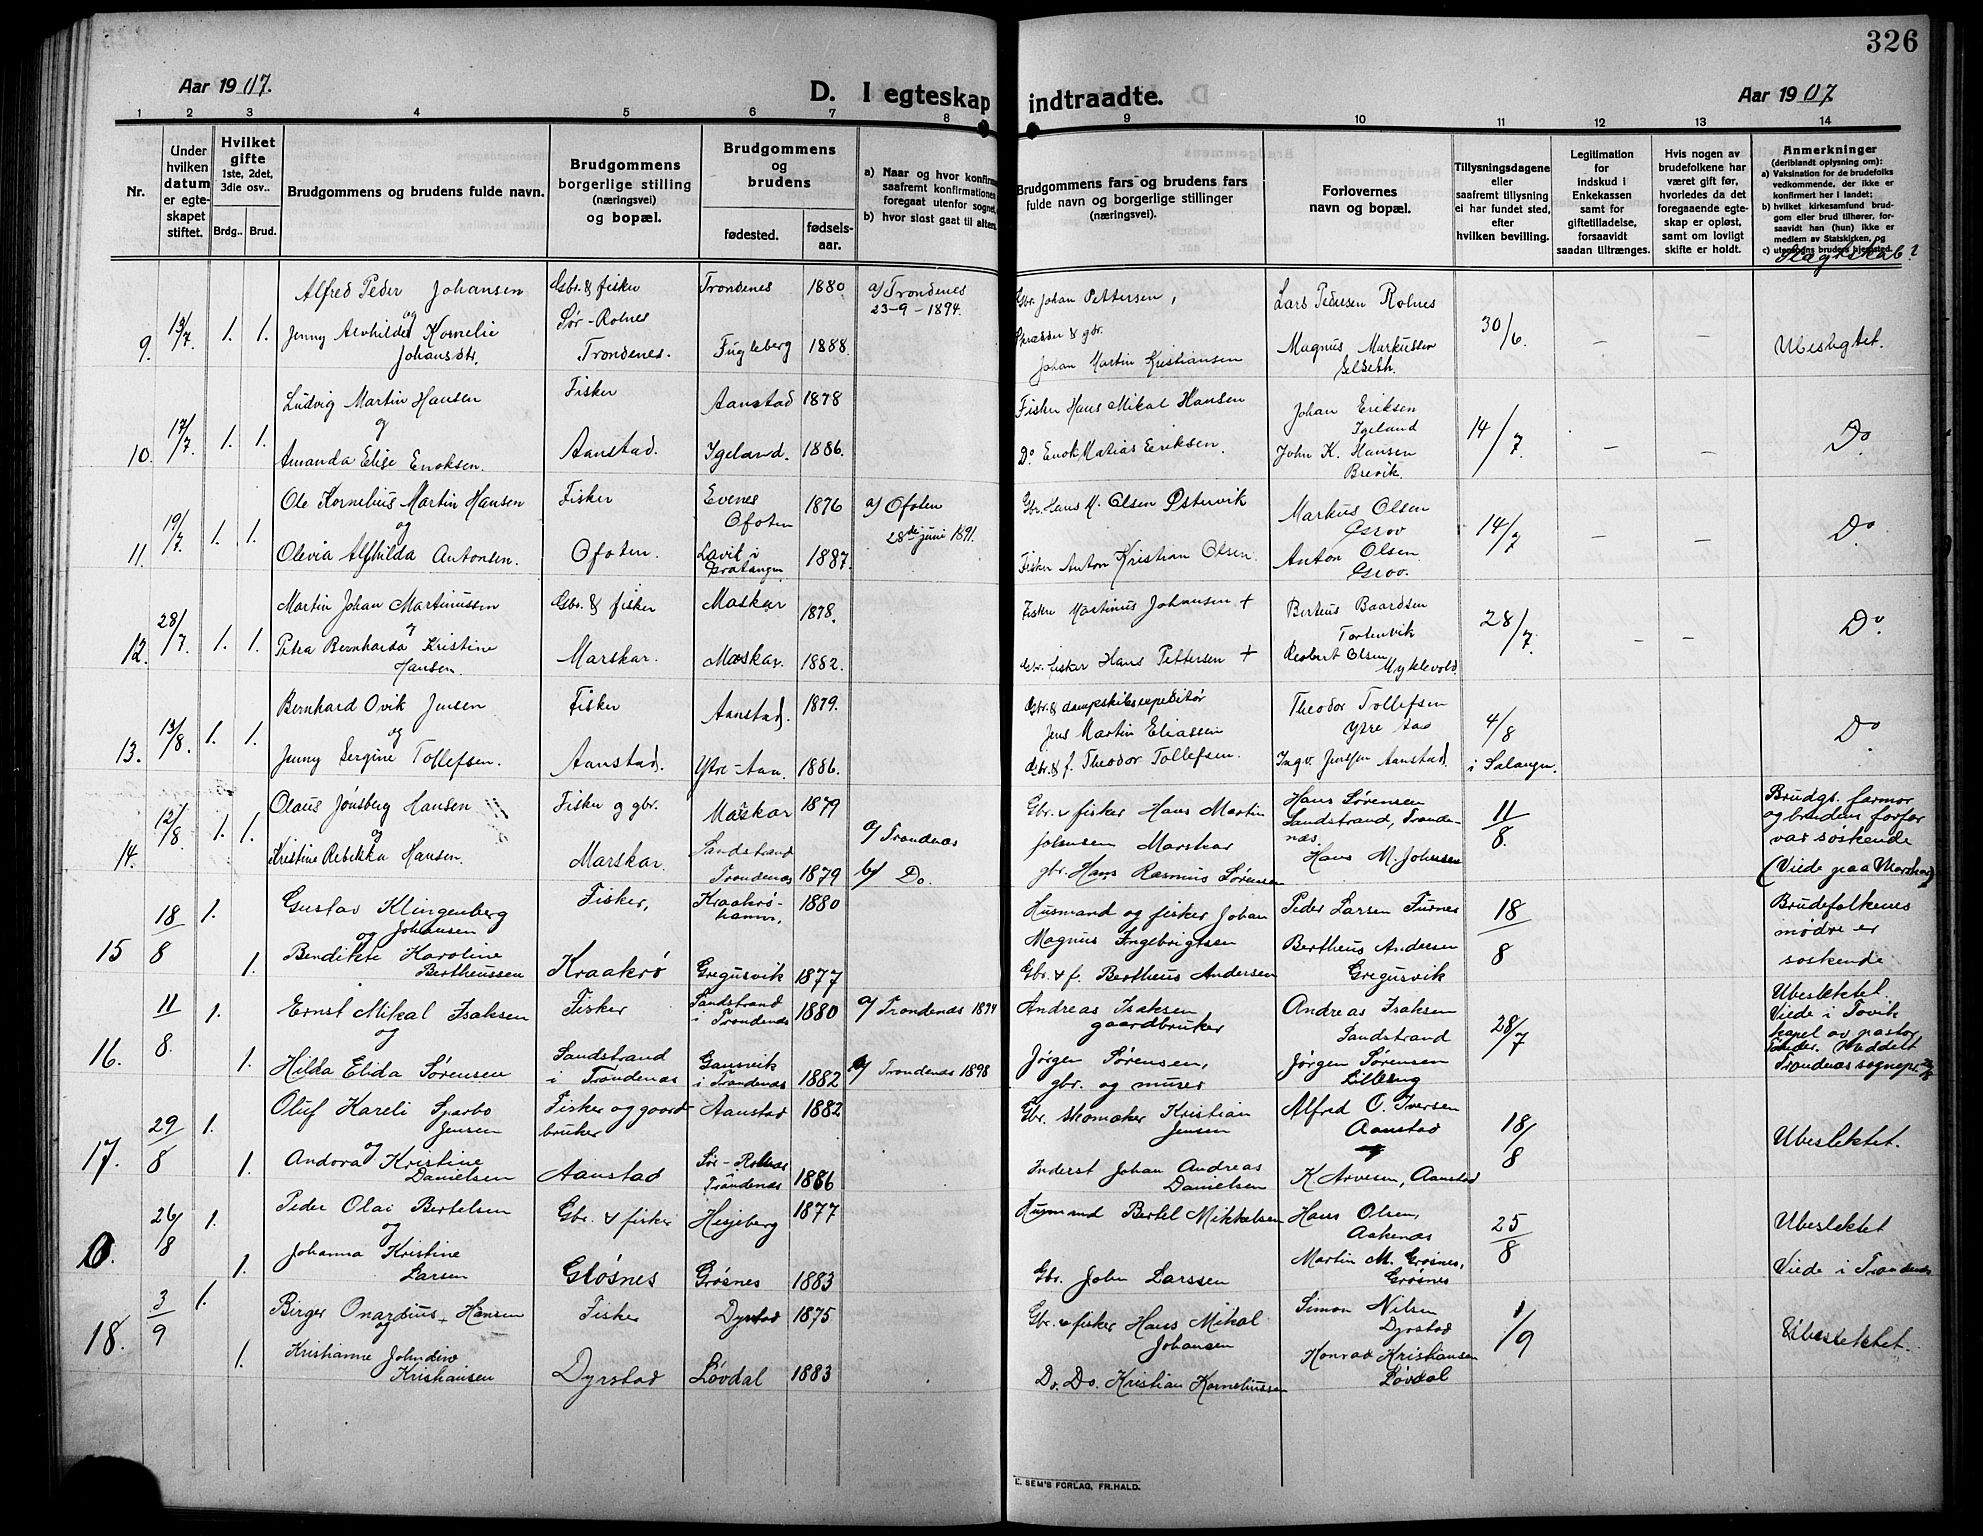 326
Aar 1907.
D. I egteskap indtraadte.
Aar 1907
1 2 3 4 5 6 7 8 9 10 11 12 13 14
Nr.
Under hvilken datum er egteskapet stiftet.
Hvilket gifte 1ste, 2det, 3die osv..
Brdg.. Brud.
Brudgommens og brudens fulde navn.
Brudgommens borgerlige stilling (næringsvei) og bopæl.
Brudgommens og brudens
fødested. fødselsaar.
a) Naar og hvor konfirm
saafremt konfirmationen
foregaat utenfor sognet,
b) hvor sidst gaat til alters
Brudgommens fars og brudens fars fulde navn og borgerlige stillinger (næringsvei).
Forlovernes navn og bopæl.
Tillysningsdagene eller saafremt tillysning ei har fundet sted, efter hvilken bevilling.
Legitimation for indskud i Enkekassen samt for giftetilladelse, forsaavidt saadan tiltrænges.
Hvis nogen av brudefolkene har været gift før, hvorledes da det foregaaende egteskap er opløst, samt om lovligt skifte er holdt.
Anmerkninger
(deriblandt oplysning om):
a) Vaksination for de brudefolks vedkommende, der ikke er konfirmert her i landet;
b) hvilket kirkesamfund brudgom eller brud tilhører, forsaavidt han (hun) ikke er medlem av Statskirken, og
c) utenbygs bruders hjemsted.
Slagtskab?
9. 13/7. 1. 1. Alfred Peder Johansen og Jenny Alvhilde Kornelie Johansdtr. Gbr. & fisker Sør-Rolnes Trondenes. Trondenes 1880 Fugleberg 1888. a) Trondenes 23-9-1894. Gbr. Johan Pettersen, Skrædder & gbr. Johan Martin Kristiansen Lars Pedersen Rolnes Magnus Markussen Selseth. 30/6. - - Ubeslegtet.
10. 17/7 1. 1. Ludvig Martin Hansen og Amanda Elise Enoksen. Fisker Aanstad. Aanstad 1878 Igeland. 1886. Fisker Hans Mikal Hansen Do Enok Matias Eriksen. Johan Eriksen Igeland John K. Hansen Brevik. 14/7. - - Do
11. 19/7 1. 1. Ole Kornelius Martin Hansen og Olevia Alfhilda Antonsen. Fisker Ofoten. Evenes Ofoten 1876 Lavik i Gratangen 1887. a) Ofoten 28de juni 1891. Gbr. Hans M. Olsen Østervik Fisker Anton Kristian Olsen. Markus Olsen Grov Anton Olsen Grov. 14/7 - - Do
12. 28/7. 1. 1. Martin Johan Martinussen og Petra Bernharda Kristine Hansen. Gbr. & fisker Marskar. Maskar 1878. Maskar. 1882. Fisker Martinus Johansen + Gbr. fisker Hans Pettersen + Berteus Baardsen Tortenvik Robert Olsen Myklevold 28/7. - - Do.
13. 13/8. 1. 1. Bernhard Ovik Jensen og Jenny Sergine Tollefsen. Fisker Aanstad. Aanstad. 1879. Ytre-Aan. 1886. Gbr. & dampskibsexpeditør Jens Martin Eliassen Gbr. & f. Theodor Tollefsen. Theodor Tollefsen Ytre Aan Ingv. Jenssen Aanstad. 4/8 i Salangen. Do.
14. 12/8 1. 1. Olaus Jønsberg Hansen og Kristine Rebekka Hansen. Fisker og gbr. Marskar. Maskar 1879 Sandstrand Trondenæs 1879 a) Trondenæs b) Do. Gbr. & fisker Hans Martin Johansen Marskar gbr. Hans Rasmus Sørensen Hans Sørensen Sandstrand, Trondenæs. Hans M. Johansen 11/8. Brudgs. farmor og brudens forfar var søskende (Viede paa Marskar)
15 18/8 1. 1. Gustav Klingenberg Johansen og Bendikte Karoline Bertheussen Fisker, Kraakrø Kraakrøhamn, 1880 Gregusvik 1877 Husmand og fisker Johan Magnus Ingebrigtsen Gbr. & f. Bertheus Andersen Peder Larsen Furnes Bertheus Andersen Gregusvik 18/8 Brudefolkenes mødre er søskende
16. 11/8. 1. 1. Ernst Mikal Isaksen og Hilda Elida Sørensen Fisker Sandstrand i Trondenæs Sandstrand i Trondenæs 1880 Gausvik i Trondenæs 1882 a) Trondenæs 1894 a) Trondenæs 1898 Andreas Isaksen gaardbruker Jørgen Sørensen, gbr. og murer Andreas Isaksen Sandstrand Jørgen Sørensen Lilleng 28/7 Ubeslektet. Viede i Tovik kapel av pastor Meddelt Trondenæs sognepr.
17. 29/8 1. 1. Oluf Kareli Sparbo Jensen og Andora Kristine Danielsen Fisker og gaardbruker Aanstad Aanstad 1882 Sør-Rolnæs Trondenæs 1886 Gbr. skomaker Kristian Jensen Inderst Johan Andreas Danielsen Alfred O. Iversen Aanstad og K Arvesen, Aanstad 18/8 Ubeslektet.
0. 26/8 1. 1. Peder Olai Bertelsen og Johanna Kristine Larsen Gbr. & fisker Grøsnes Hesjeberg 1877 Grøsnes 1883 Husmand Bertel Mikkelsen Gbr. John Larssen Hans Olsen, Aakenæs Martin M. Grøsnes, Grøsnes 25/8 Ubeslektet Viede i Trondenæs
18. 3/9 1. 1. Birger Onardius Hansen og Kristianne Johndine Kristiansen Fisker Dyrstad Dyrstad 1875 Løvdal 1883 Gbr. & fisker Hans Mikal Johansen Do. Do. Kristian Korneliussen Simon Nilsen Dyrstad Konrad Kristiansen Løvdal 1/9 Ubeslektet.
E. SEM'S FORLAG, FR.HALD.